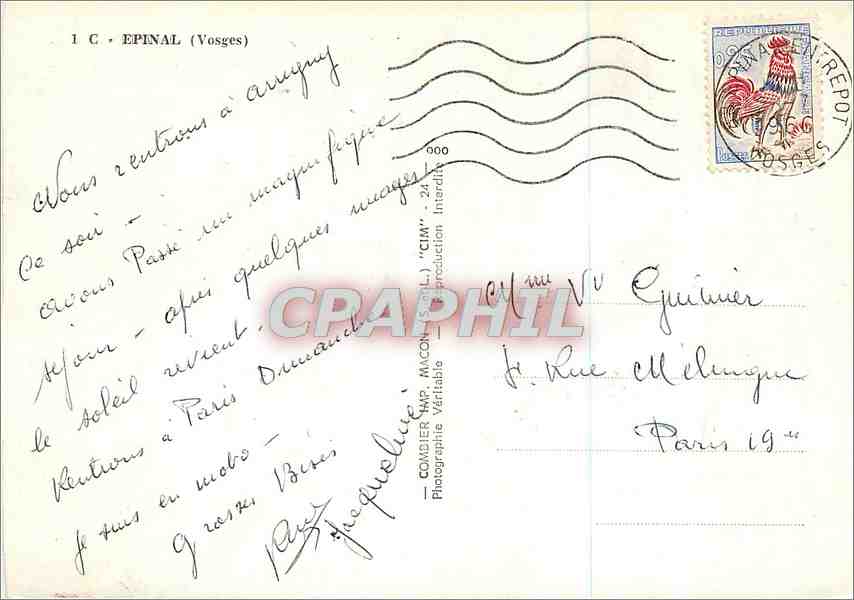 1 C - EPINAL (Vosges)
Nous rentrons à
ce soir -
avons Passé un magnifique
séjour - après quelques nuages
le soleil revient.
Rentrons à Paris Dimanche
Je suis en mobo -
grosses Bises
Jacqueline
— COMBIER IMP. MACON (S.-et-L.) "CIM" - 24 —
Photographie Véritable — Reproduction Interdite
000
REPUBLIQUE
EPINAL-ENTREPOT
1966
VOSGES
Mme Vve
Rue Mélingue
Paris 19e
CPAPHIL